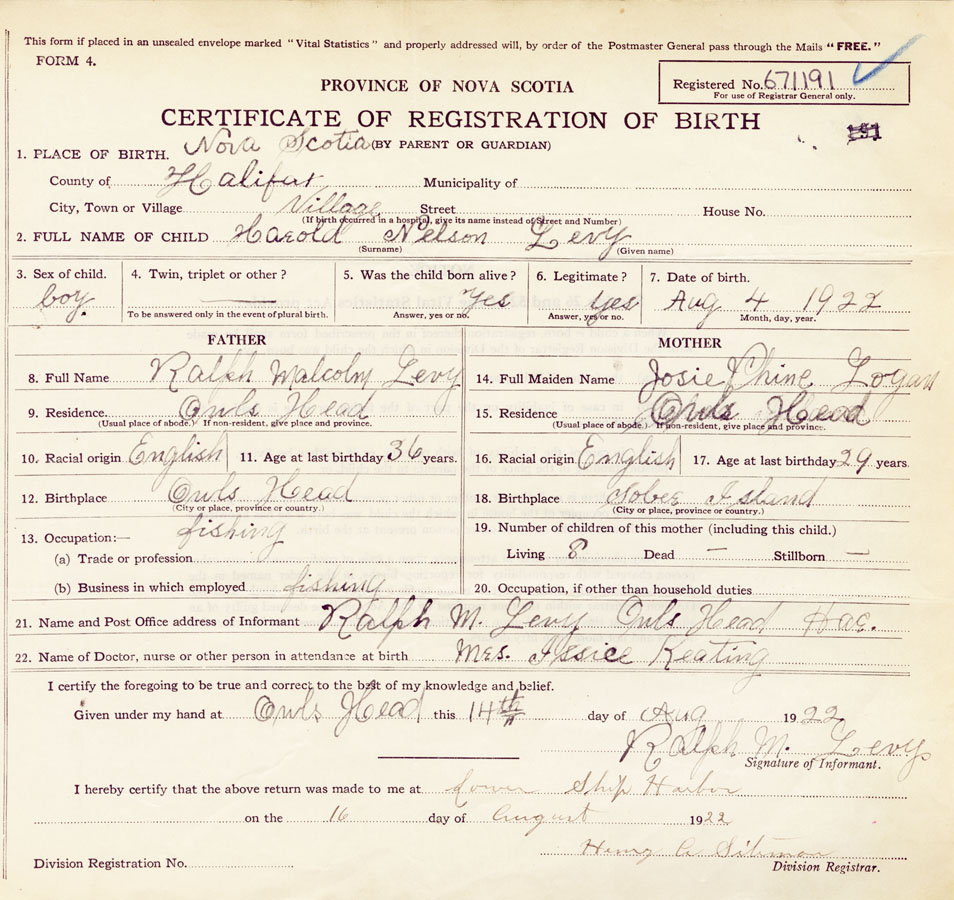 This form if placed in an unsealed envelope marked "Vital Statistics" and properly addressed will, by order of the Postmaster General pass through the Mails "FREE."
FORM 4.
Registered No. 671191
For use of Registrar General only.
PROVINCE OF NOVA SCOTIA
CERTIFICATE OF REGISTRATION OF BIRTH
1. PLACE OF BIRTH. Nova Scotia (BY PARENT OR GUARDIAN)
County of Halifax Municipality of
City, Town or Village Village Street House No.
(If birth occurred in a hospital, give its name instead of Street and Number)
2. FULL NAME OF CHILD Harold Nelson Levy
(Surname) (Given name)
3. Sex of child. 4. Twin, triplet or other? 5. Was the child born alive? 6. Legitimate? 7. Date of birth.
boy. — Yes Yes Aug 4 1922
To be answered only in the event of plural birth. Answer, yes or no. Answer, yes or no. Month, day, year.
FATHER MOTHER
8. Full Name Ralph Malcolm Levy 14. Full Maiden Name Josie Phine Logan
9. Residence. Owls Head 15. Residence Owls Head
(Usual place of abode.) If non-resident, give place and province. (Usual place of abode.) If non-resident, give place and province.
10. Racial origin English 11. Age at last birthday 36 years. 16. Racial origin English 17. Age at last birthday 29 years.
12. Birthplace Owls Head 18. Birthplace Sober Island
(City or place, province or country.) (City or place, province or country.)
13. Occupation:— fishing 19. Number of children of this mother (including this child.)
(a) Trade or profession Living 8 Dead — Stillborn —
(b) Business in which employed fishing 20. Occupation, if other than household duties
21. Name and Post Office address of Informant Ralph M. Levy Owls Head Hae.
22. Name of Doctor, nurse or other person in attendance at birth Mrs. Keating
I certify the foregoing to be true and correct to the best of my knowledge and belief.
Given under my hand at Owls Head this 14th day of Aug 1922
Ralph M. Levy
Signature of Informant.
I hereby certify that the above return was made to me at Lower Ship Harbor
on the 16 day of August 1922
Henry
Division Registration No. Division Registrar.